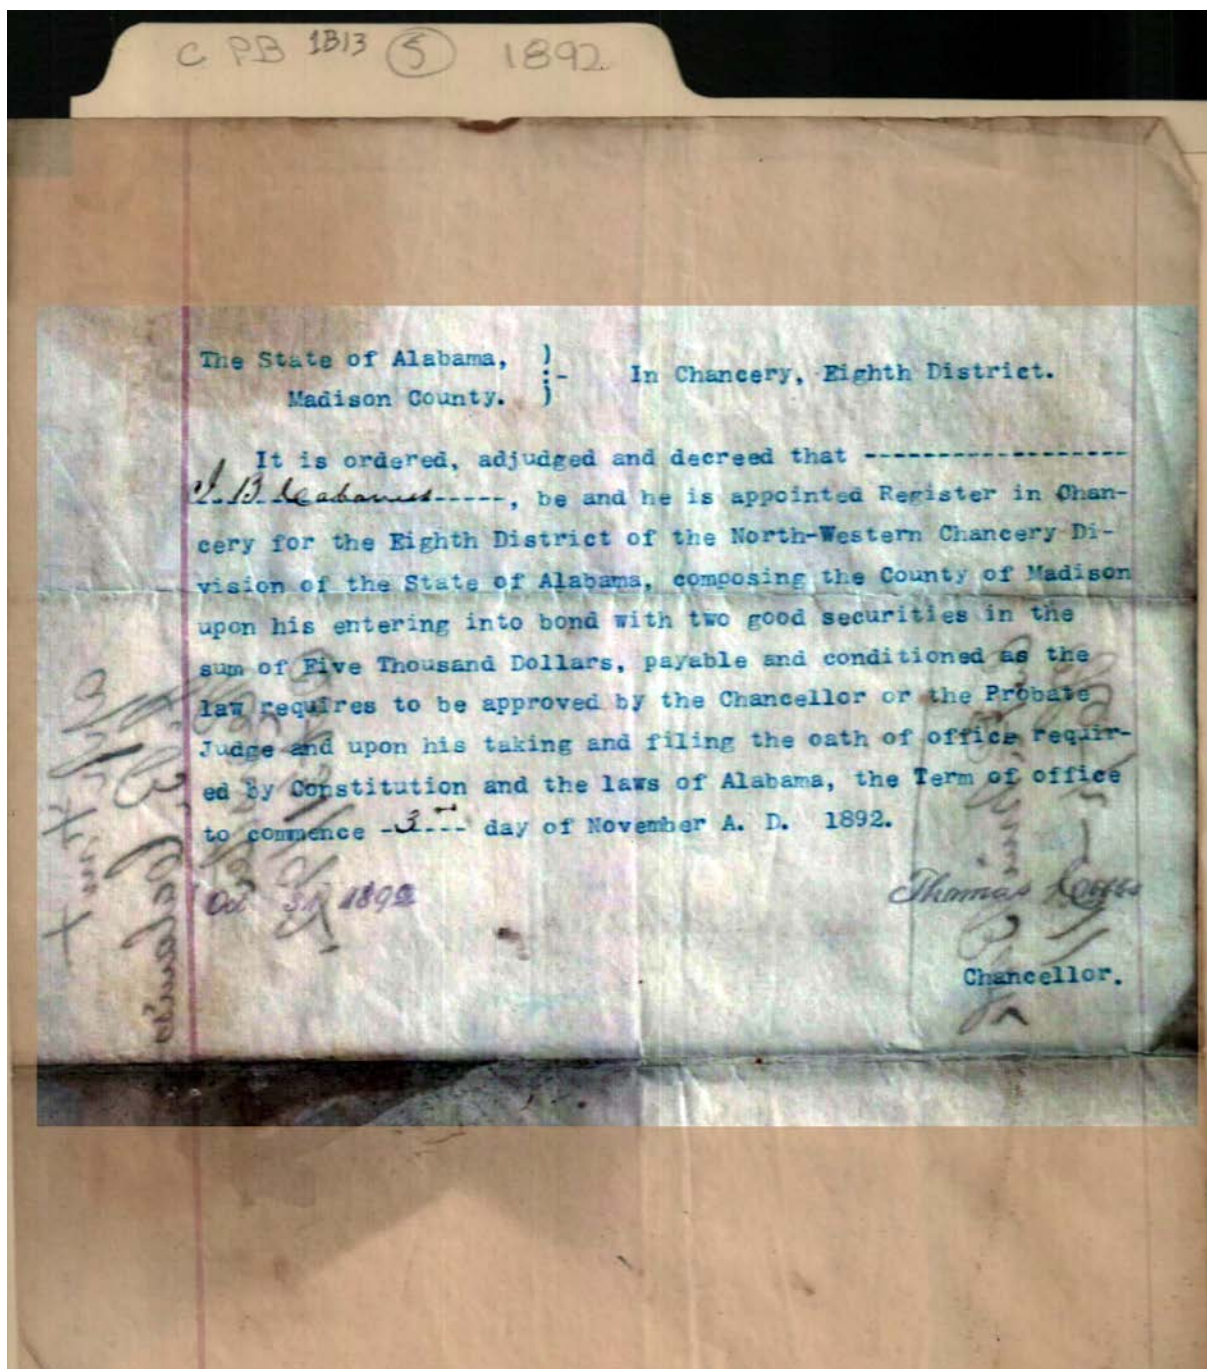 C PB 1B13 5 1892
The State of Alabama, )
:- In Chancery, Eighth District.
Madison County. )
It is ordered, adjudged and decreed that -------------------
B. Cabaniss-----, be and he is appointed Register in Chan-
cery for the Eighth District of the North-Western Chancery Di-
vision of the State of Alabama, composing the County of Madison
upon his entering into bond with two good securities in the
sum of Five Thousand Dollars, payable and conditioned as the
law requires to be approved by the Chancellor or the Probate
Judge and upon his taking and filing the oath of office requir-
ed by Constitution and the laws of Alabama, the Term of office
to commence -3--- day of November A. D. 1892.
Oct 31 1892 Thomas Cobbs
Chancellor.